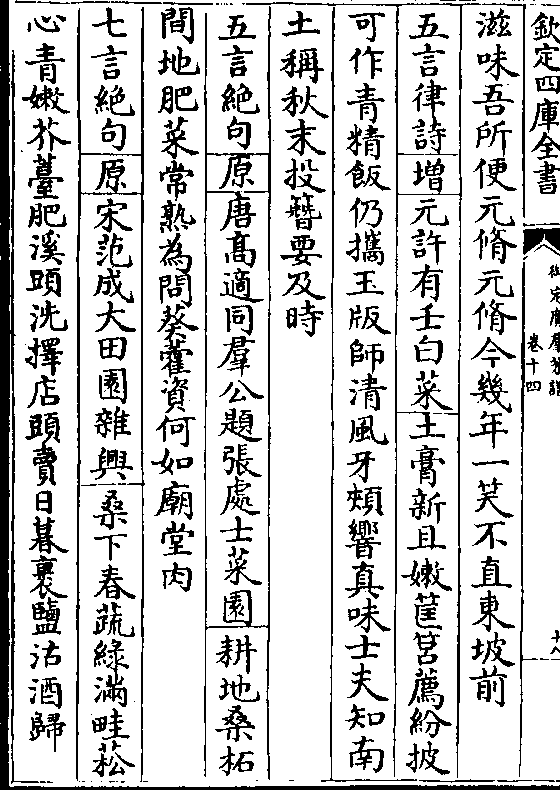 欽定四庫全書
卷十四
滋味吾所便元脩元脩今幾年一笑不直東坡前
五言律詩增元許有壬白菜土膏新且嫩筐筥薦紛披
可作青精飯仍攜玉版師清風牙頰響真味士夫知南
土稱秋末投簪要及時
五言絶句原唐高適同羣公題張處士菜園耕地桑柘
間地肥菜常熟為問葵藿資何如廟堂肉
七言絶句原宋范成大田園雜興桑下春蔬綠滿畦菘
心青嫩芥薹肥溪頭洗擇店頭賣日暮裹鹽沽酒歸